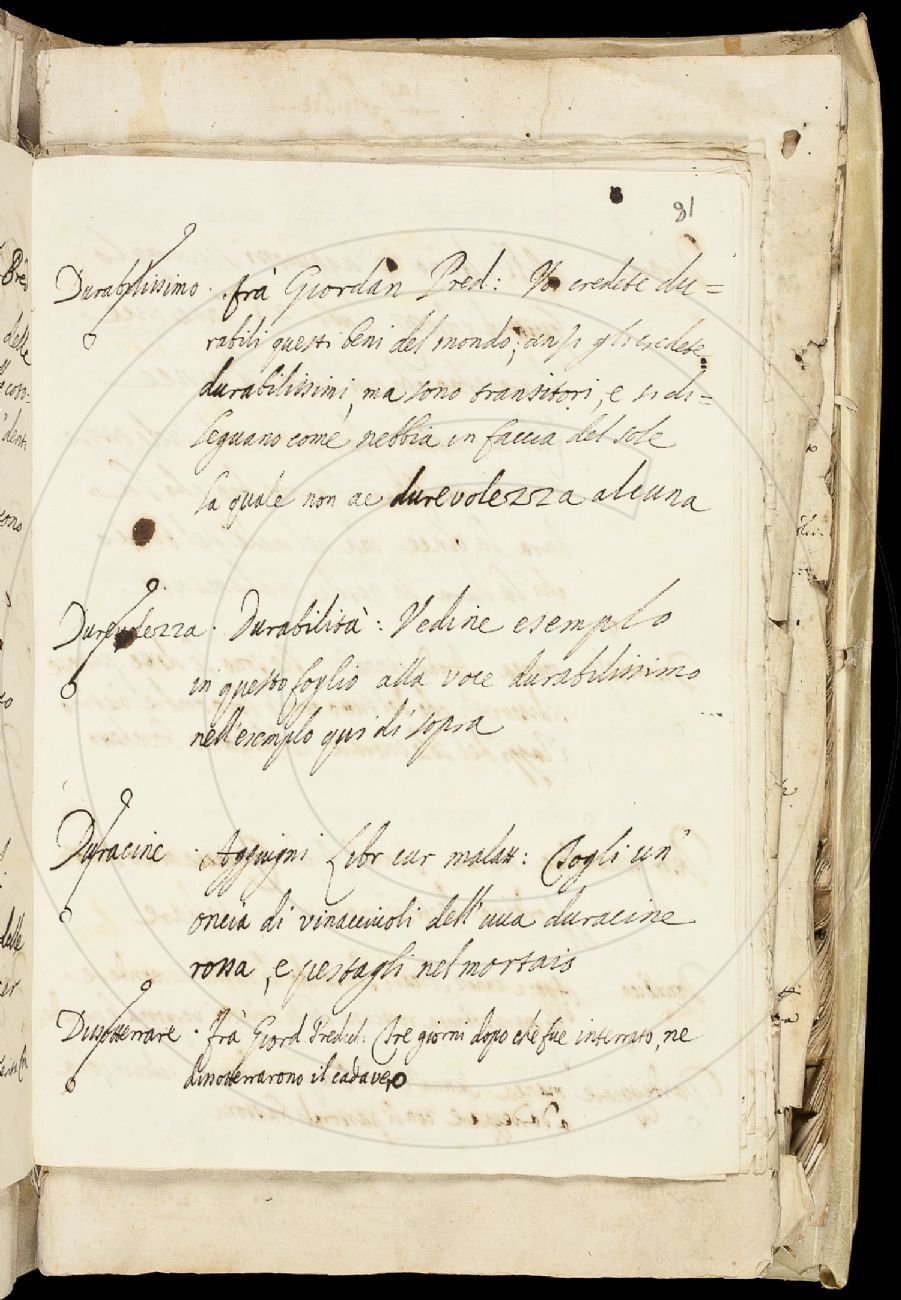 81
Durabilissimo. frà Giordan Pred: Voi credete du=
rabili questi beni del mondo, gli credete
durabilissimi, ma sono transitori, e si di=
leguano come nebbia in faccia del sole
la quale non ae durevolezza alcuna
Durevolezza. Durabilità: Vedine esemplo
in questo foglio alla voce durabilissimo
nell'esemplo qui di sopra
Duracine. Aggiugni Libr cur malatt: Togli un'
oncia di vinacciuoli dell'uua duracine
rossa, e pestagli nel mortaio
Disotterrare. Frà Giord Pred. Tre giorni dopo che fue interrato, ne
disotterrarono il cadavero